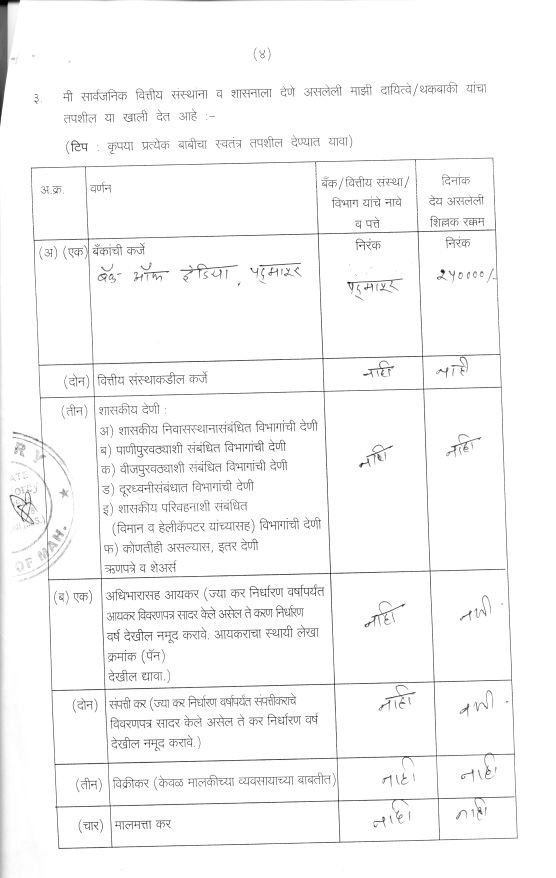 (४)
३. मी सार्वजनिक वित्तीय संस्थाना व शासनाला देणे असलेली माझी दायित्वे/थकबाकी यांचा
तपशील या खाली देत आहे :-
(टिप : कृपया प्रत्येक बाबीचा स्वतंत्र तपशील देण्यात यावा)
अ.क्र. वर्णन बँक/वित्तीय संस्था/ दिनांक
विभाग यांचे नावे देय असलेली
व पत्ते शिल्लक रक्कम
(अ) (एक) बँकांची कर्जे निरंक निरंक
बँक ऑफ इंडिया, २५००००/-
(दोन) वित्तीय संस्थाकडील कर्जे नाही नाही
(तीन) शासकीय देणी :
अ) शासकीय निवासस्थानासंबंधित विभागांची देणी
ब) पाणीपुरवठ्याशी संबंधित विभागांची देणी
क) वीजपुरवठ्याशी संबंधित विभागांची देणी नाही नाही
ड) दूरध्वनीसंबंधात विभागांची देणी
इ) शासकीय परिवहनाशी संबंधित
(विमान व हेलीकॅपटर यांच्यासह) विभागांची देणी
फ) कोणतीही असल्यास, इतर देणी
ऋणपत्रे व शेअर्स
(ब) एक) अधिभारासह आयकर (ज्या कर निर्धारण वर्षापर्यंत
आयकर विवरणपत्र सादर केले असेल ते करण निर्धारण
वर्ष देखील नमूद करावे. आयकराचा स्थायी लेखा नाही
क्रमांक (पॅन)
देखील द्यावा.)
(दोन) संपत्ती कर (ज्या कर निर्धारण वर्षापर्यंत संपत्तीकराचे नाही
विवरणपत्र सादर केले असेल ते कर निर्धारण वर्ष
देखील नमूद करावे.)
(तीन) विक्रीकर (केवळ मालकीच्या व्यवसायाच्या बाबतीत) नाही नाही
(चार) मालमत्ता कर नाही नाही
OF MAH.